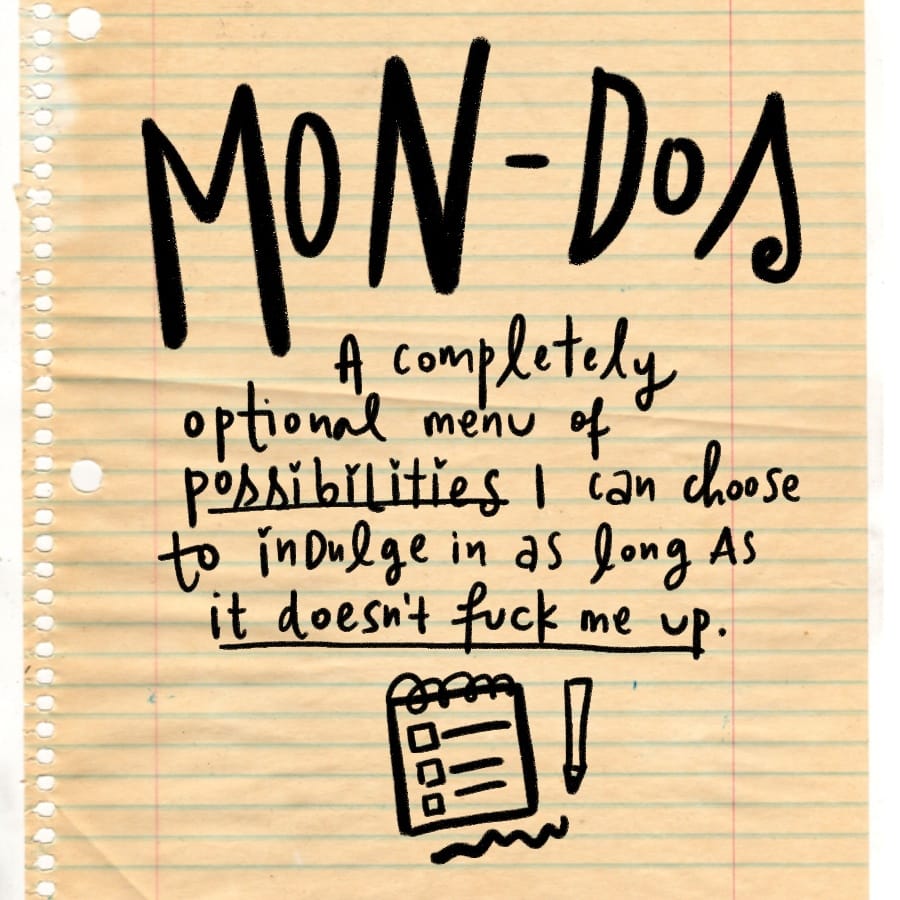 MON-DOS
A completely
optional menu of
possibilities I can choose
to indulge in as long As
it doesn't fuck me up.